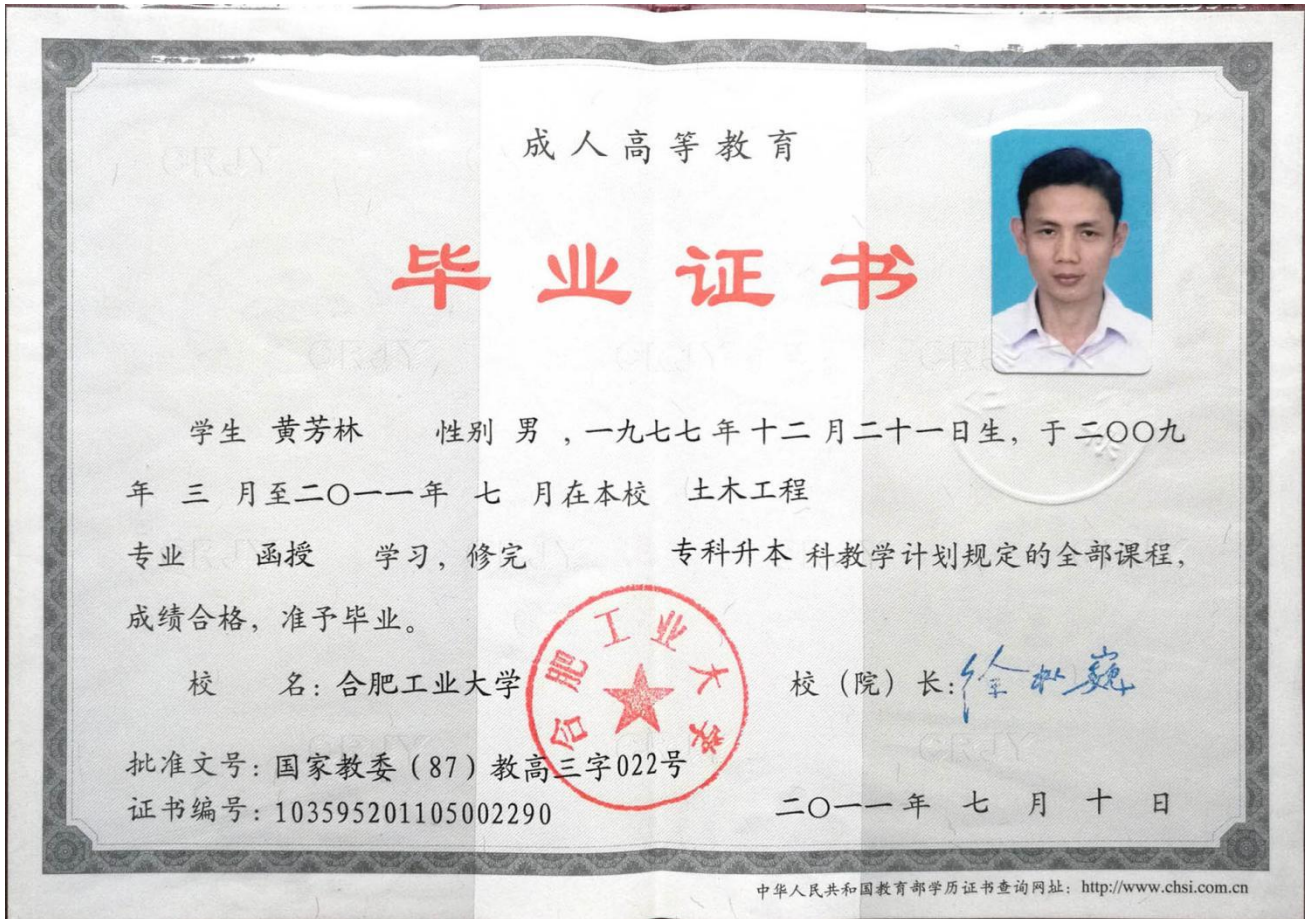 成人高等教育
毕业证书
学生 黄芳林 性别 男 ,一九七七年十二月二十一日生，于二〇〇九
年 三 月至二〇一一年 七 月在本校 土木工程
专业 函授 学习，修完 专科升本 科教学计划规定的全部课程，
成绩合格，准予毕业。
校 名：合肥工业大学
合肥工业大学
校（院）长：徐枞巍
批准文号：国家教委（87）教高三字022号
证书编号：103595201105002290
二〇一一年 七 月 十 日
中华人民共和国教育部学历证书查询网址：http://www.chsi.com.cn